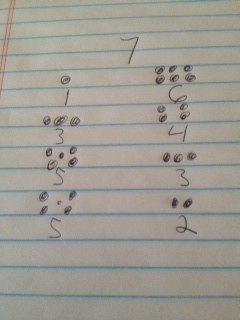 7
1 6
3 4
5 3
5 2